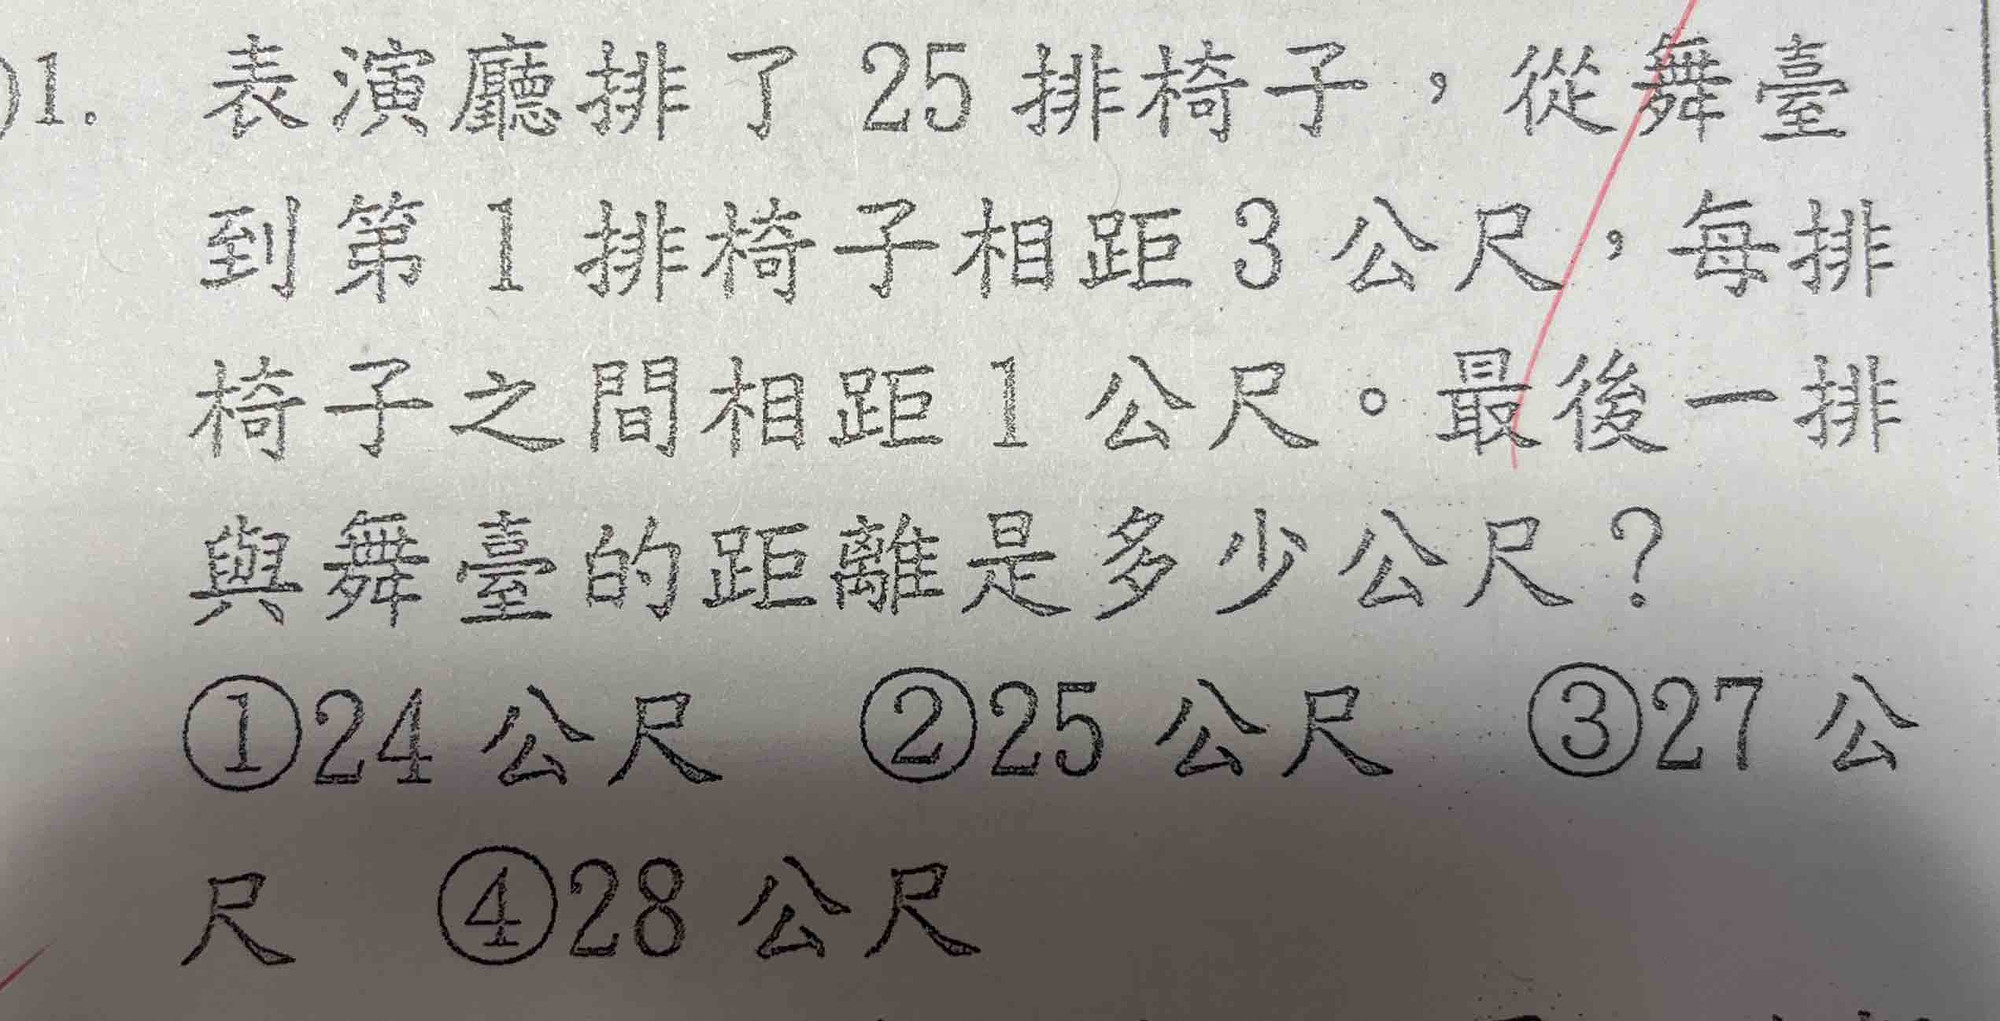 )1. 表演廳排了 25 排椅子，從舞臺
到第 1 排椅子相距 3 公尺，每排
椅子之間相距 1 公尺。最後一排
與舞臺的距離是多少公尺？
①24 公尺 ②25 公尺 ③27 公
尺 ④28 公尺